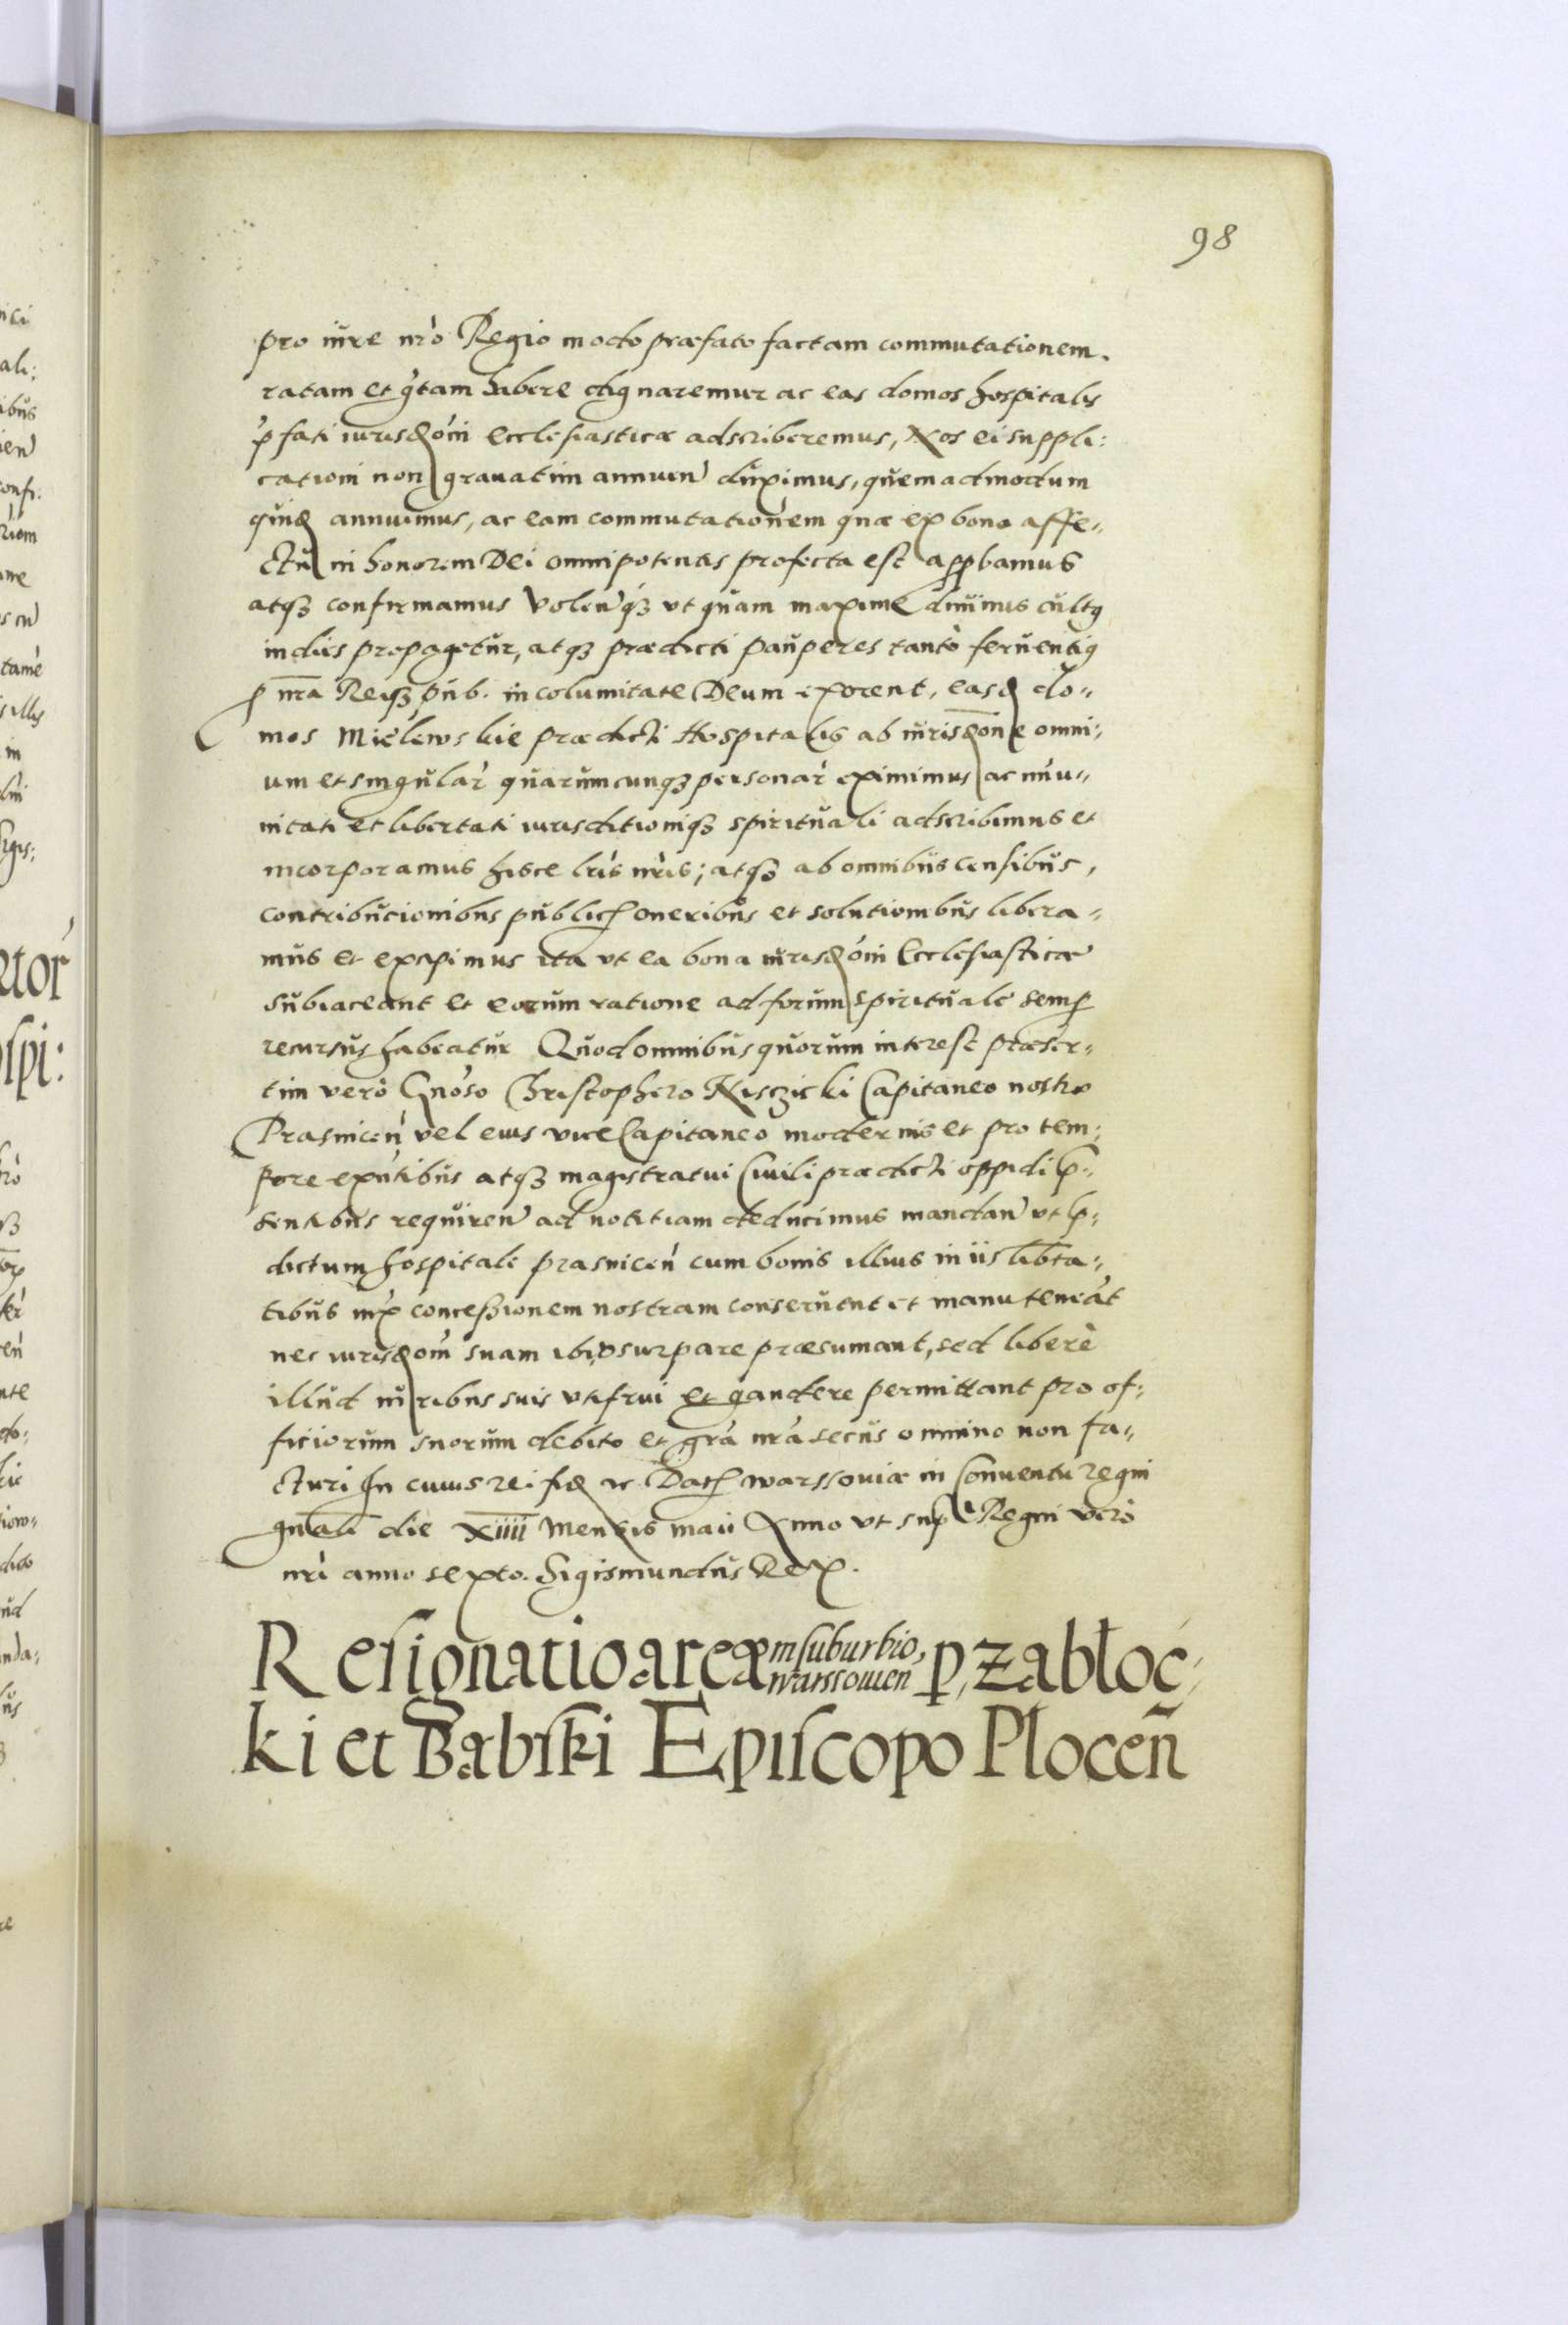 98
pro iure nr̃o Regio modo præfato factam commutationem.
ratam et gr̃tam habere dignaremur ac eas domos hospitalis
p̃fati iurisd̃oni ecclesiasticæ adscriberemus, Nos ei suppli:
cationi non grauatim annuen̄ duximus, quemadmodum
quid annuimus, ac eam commutationem quæ ex bono affe„
ctu in honorem Dei omnipotentis profecta est approbamus
atqꝫ confirmamus Volen̄qꝫ vt quam maxime diuinus cultꝯ
indies propagetur, atqꝫ prædicti pauperes tanto feruentiꝯ
p nr̃a Reiqꝫ pub. incolumitate Deum exorent, easd do„
mos Mielewskie prædicti Hospitalis ab iurisd̃one omni:
um et singular̃ quarumcunqꝫ personar̃ eximimus ac imu„
nitati et libertati iurisditioniqꝫ spirituali adscribimus et
incorporamus hisce lr̃is nr̃is; atqꝫ ab omnibus censibus,
contribucionibus publicis oneribus et solutionibus libera„
mus et excipimus ita vt ea bona iurisd̃oni Ecclesiasticæ
subiaceant et eorum ratione ad forum spirituale semꝑ
recursus habeatur Quod omnibus quorum interest præser„
tim vero Gnõso Christophero Nisczicki Capitaneo nostro
Prasnicen̄ vel eius viceCapitaneo modernis et pro tem:
pore exñtibus atqꝫ magistratui Ciuili prædicti oppidi p̃:
sentibus requiren̄ ad notitiam deducimus mandan̄ vt p̃:
dictum hospitale prasnicen̄ cum bonis illius in iis lib̃ta:
tibus iux̃ concessionem nostram conseruent et manuteneãt
nec iurisd̃om̃ suam ibi vsurpare præsumant, sed libere
illud iuribus suis vtifrui et gaudere permittant pro of:
ficiorum suorum debito et gr̃a nr̃a secus omnino non fa„
cturi In cuius rei fid ꝛc Datꝭ warssouiæ in Conuentu regni
gnãli die XIIII Mensis maii Anno vt supᵃ Regni vero
nr̃i anno sexto. Sigismundus Rex.
Resignatio areæ in suburbio warssouien ꝑ zabłoc:
ki et Babski Episcopo Płoceñ